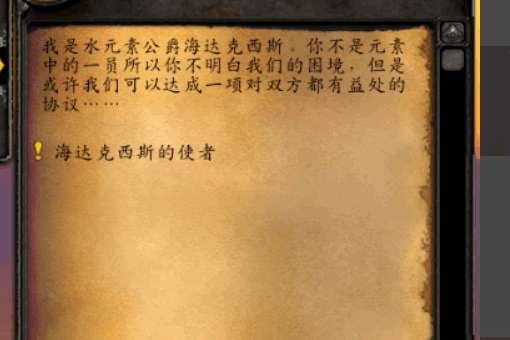 我是水元素公爵海达克西斯。你不是元素
中的一员所以你不明白我们的困境，但是
或许我们可以达成一项对双方都有益处的
协议……
海达克西斯的使者